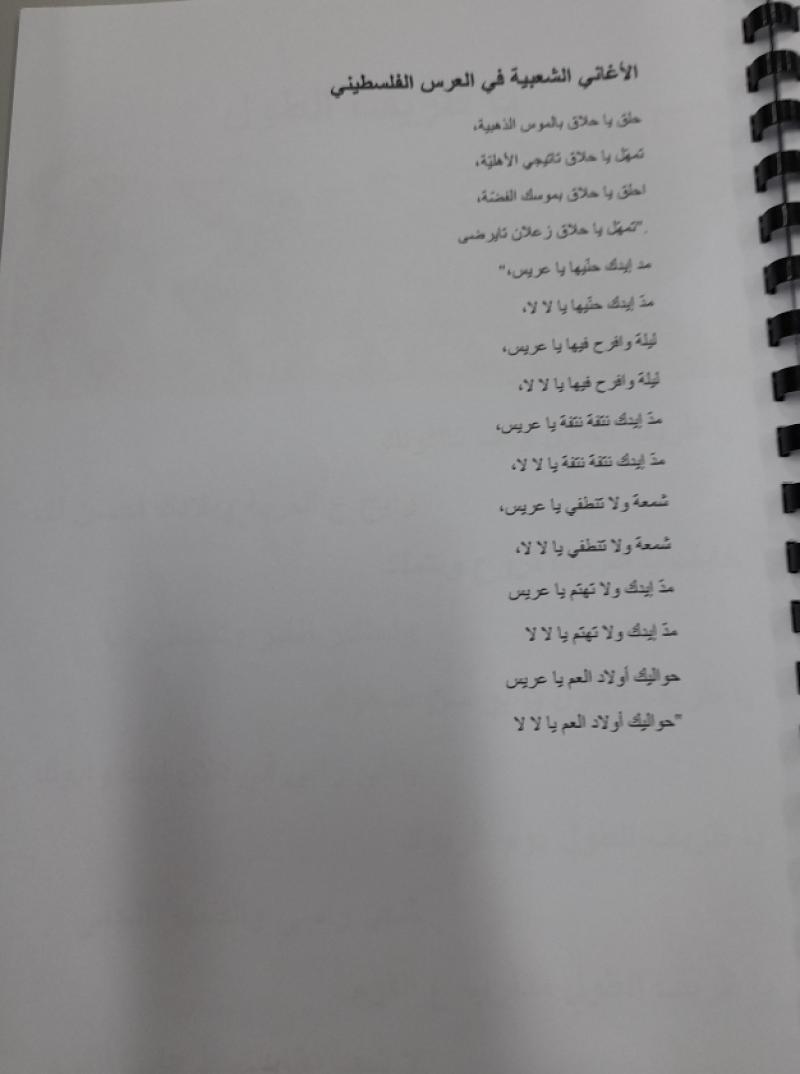 الأغاني الشعبية في العرس الفلسطيني
حلق يا حلاق بالموس الذهبية،
تمهّل يا حلاق تاتيجي الأهليّة،
احلق يا حلاق بموسك الفضّة،
."تمهّل يا حلاق زعلان تايرضى
مد إيدك حنّيها يا عريس،"
مدّ إيدك حنّيها يا لا لا،
ليلة وافرح فيها يا عريس،
ليلة وافرح فيها يا لا لا،
مدّ إيدك نتفة نتفة يا عريس،
مدّ إيدك نتفة نتفة يا لا لا،
شمعة ولا تنطفي يا عريس،
شمعة ولا تنطفي يا لا لا،
مدّ إيدك ولا تهتم يا عريس
مدّ إيدك ولا تهتم يا لا لا
حواليك أولاد العم يا عريس
"حواليك أولاد العم يا لا لا